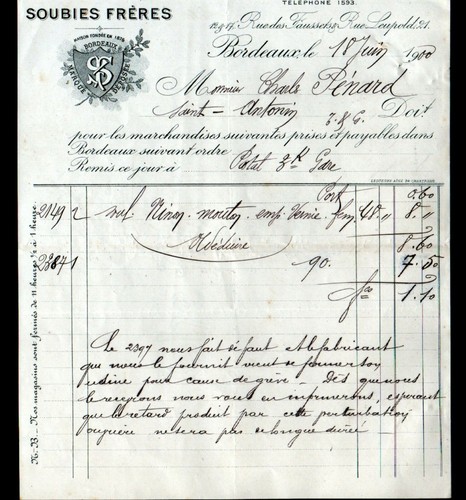 SOUBIES FRÈRES
TÉLÉPHONE 1593.
MAISON FONDÉE EN 1826
BORDEAUX
MARQUE DÉPOSÉE
SF
15 & 17, Rue des Faussets & Rue Leupold, 21.
Bordeaux, le 18 Juin 1900
Monsieur Charles Pénard
Saint-Antonin T. & G. Doit
pour les marchandises suivantes prises & payables dans
Bordeaux suivant ordre
Remis ce jour à Gare
Port 0.60
2149 2 mouton 4.00 8.00
à déduire 8.60
2384 1 90. 7.50
1.10
Le 2397 nous fait défaut et le fabricant
que nous le fournit vient de fermer son
usine pour cause de grève. Dès que nous
le recevrons nous vous en informerons, espérant
que le retard produit par cette perturbation
ouvrière ne sera pas de longue durée
N. B. — Nos magasins sont fermés de 11 heures ½ à 1 heure.